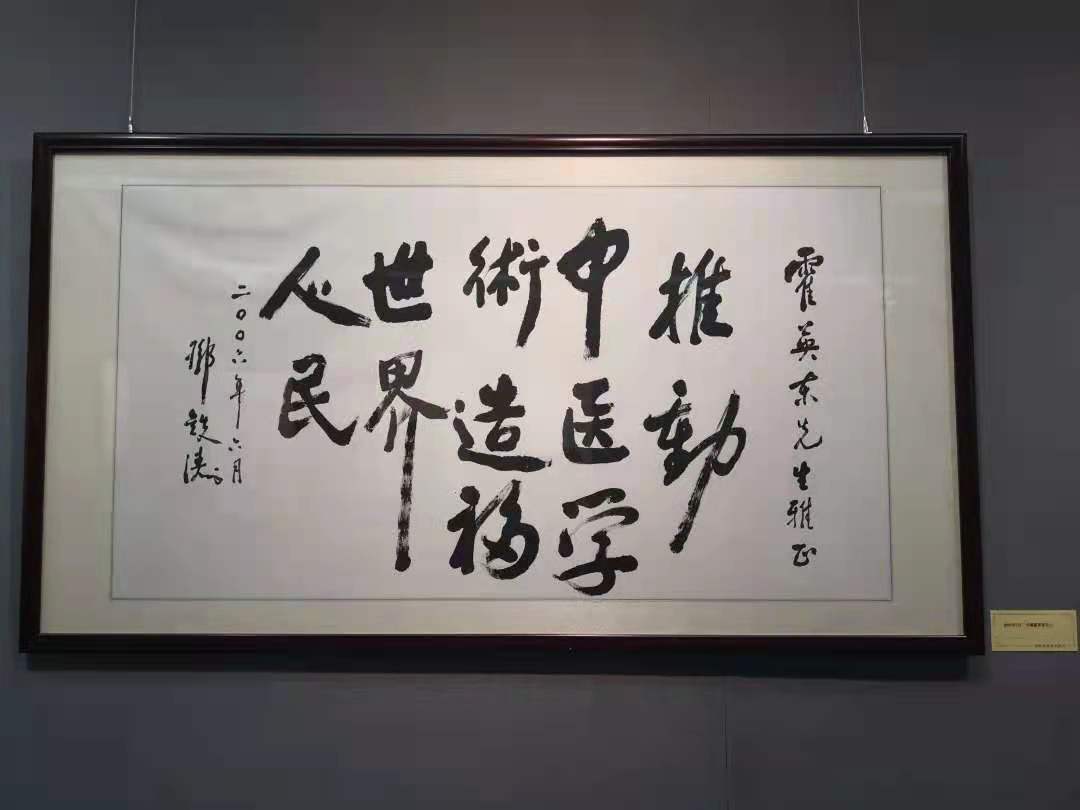 霍英东先生雅正
推動
中医学
術造福
世界
人民
二〇〇六年六月